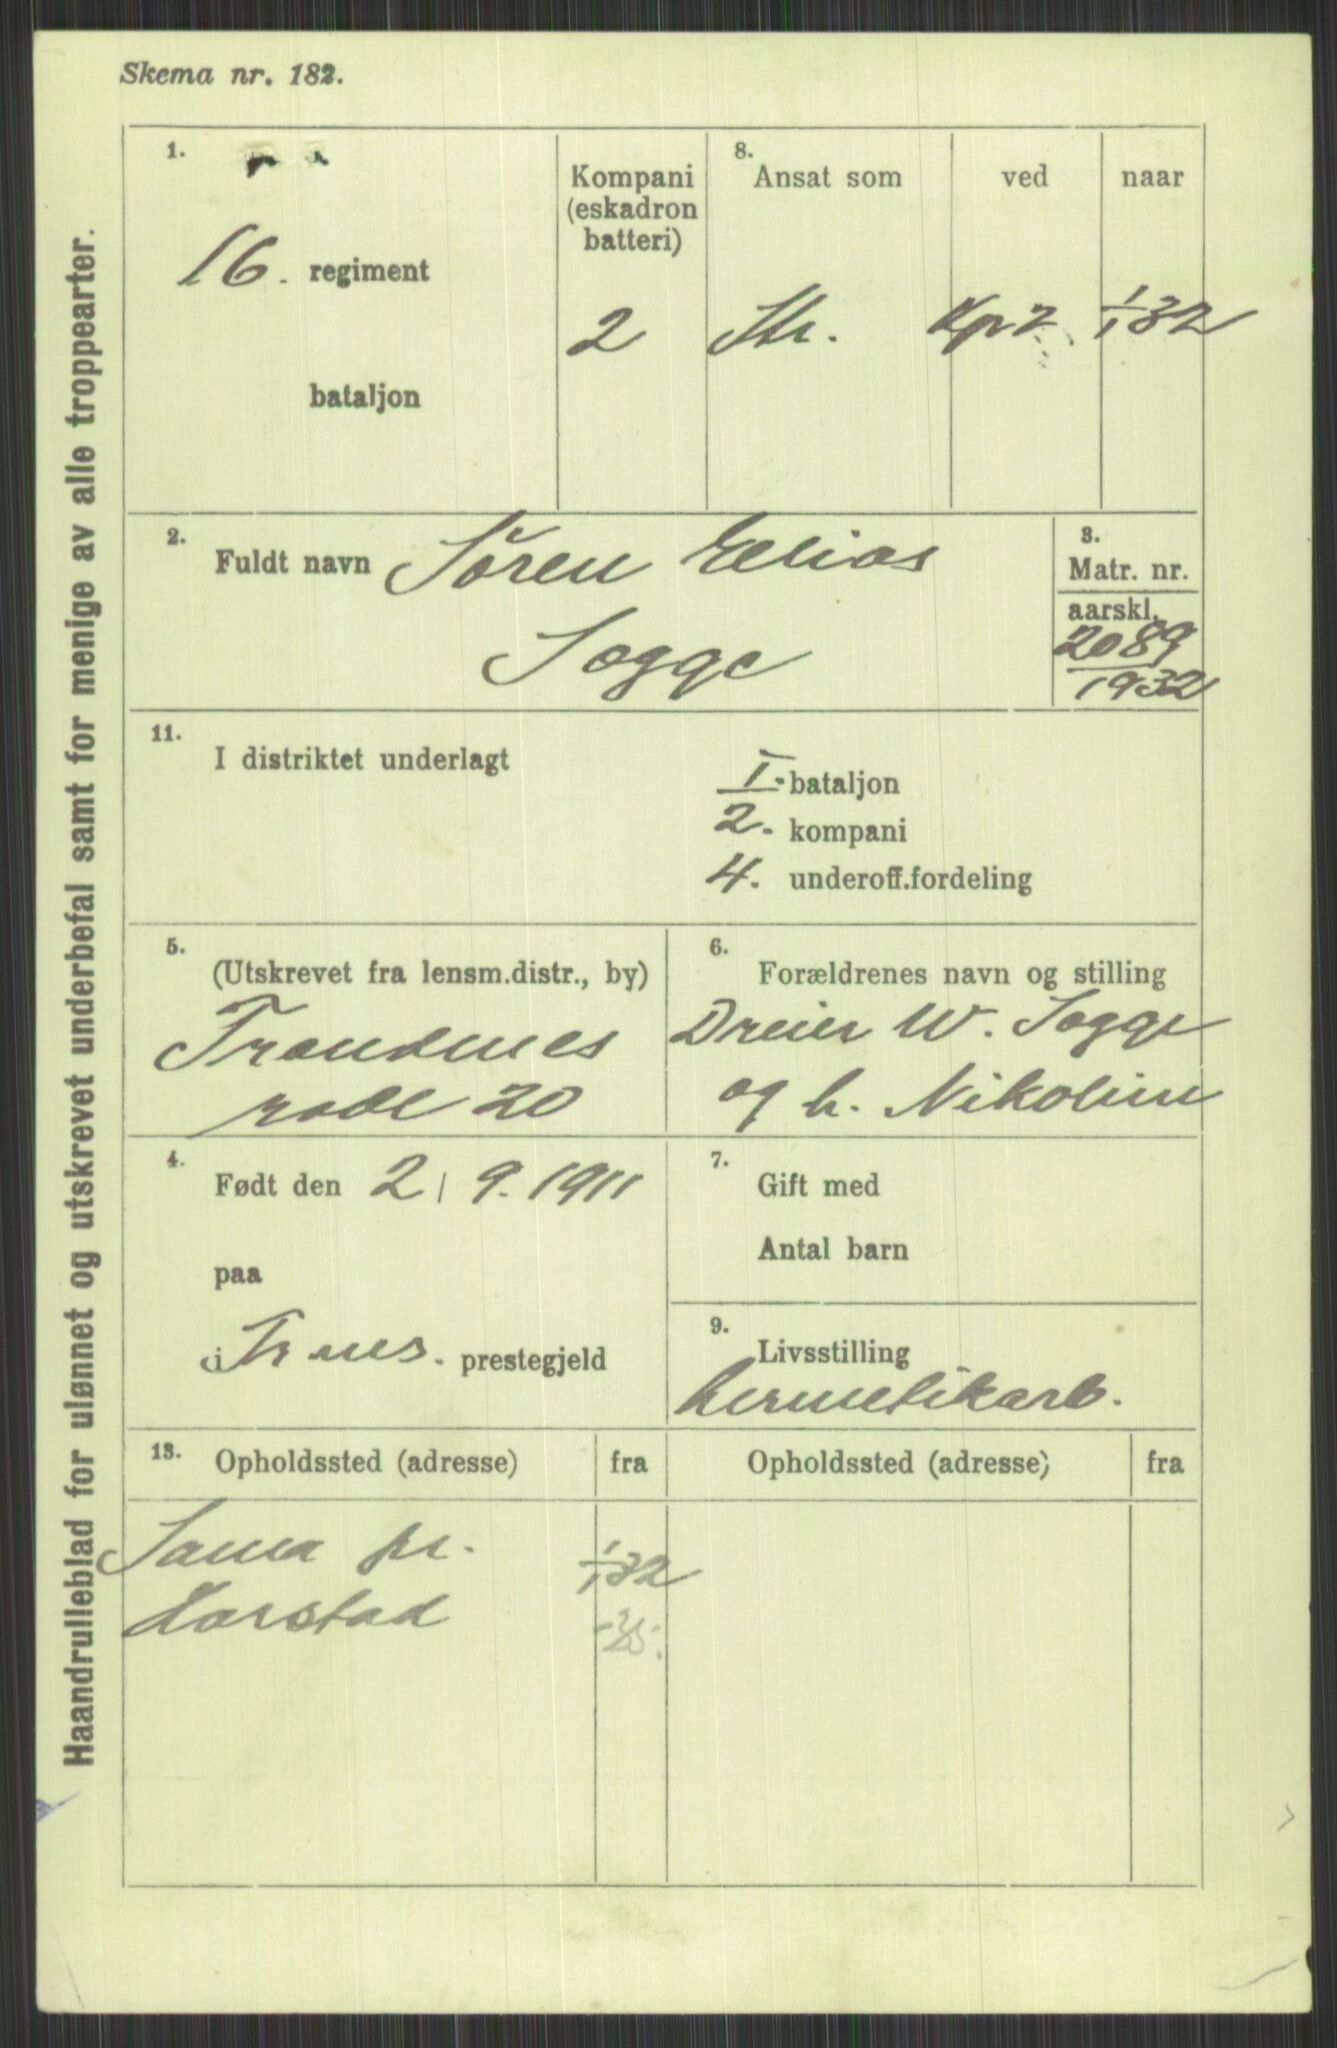 Skema nr. 182.
Haandrulleblad for ulønnet og utskrevet underbefal samt for menige av alle troppearter.
1.
16. regiment
bataljon
Kompani
(eskadron
batteri)
2
8.
Ansat som
ved
naar
Str.
Kp 2
1/1 32
2.
Fuldt navn Sören Elias
Sogge
3.
Matr. nr.
aarskl.
2089
1932
11.
I distriktet underlagt
I. bataljon
2. kompani
4. underoff.fordeling
5.
(Utskrevet fra lensm.distr., by)
Trondenes
rode 20
6.
Forældrenes navn og stilling
Dreier W. Sogge
og h. Nikoline
4.
Født den 2/9. 1911
paa
i Tr.nes. prestegjeld
7.
Gift med
Antal barn
9.
Livsstilling
hermetikarb.
13.
Opholdssted (adresse)
fra
Opholdssted (adresse)
fra
Sama pr.
1/1 32
Harstad